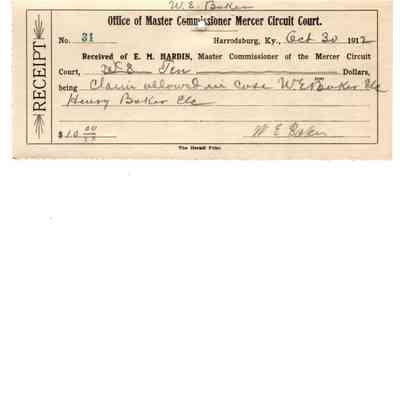 W. E. Baker
Office of Master Commissioner Mercer Circuit Court.
No. 31 Harrodsburg, Ky., Oct 30 1912
Received of E. M. HARDIN, Master Commissioner of the Mercer Circuit
Court, Ten Dollars,
being Claim allowed in case W E Baker &c
Henry Baker &c
$10 00/xx
W E Baker
The Herald Print.
RECEIPT